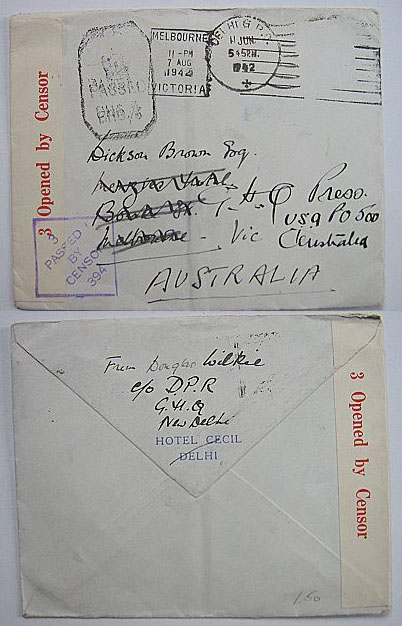 3 Opened by Censor
PASSED
DHB/
MELBOURNE
11-PM
7 AUG
1942
VICTORIA
DELHI G.P.O.
11 JUN
1942
Dickson Brown Esq.
G.H.Q Press.
USA PO 500
Melbourne - Vic Australia
AUSTRALIA
3
PASSED
BY
CENSOR
394
From Douglas Wilkie
c/o D.P.R
G.H.Q
New Delhi
HOTEL CECIL
DELHI
3 Opened by Censor
1/50